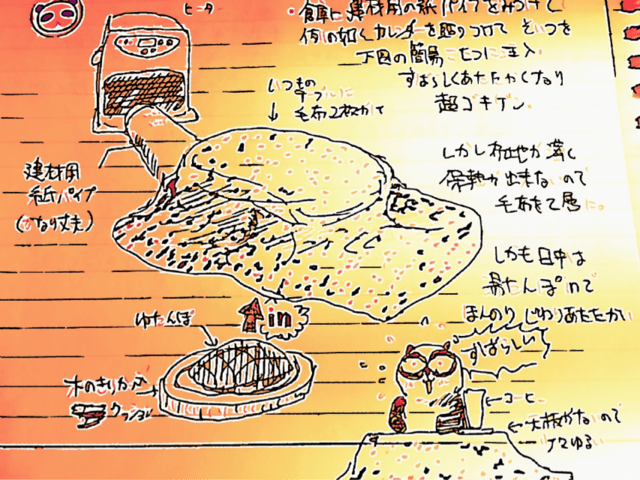 ヒータ
・食車に建材用の紙パイプをみつけて
例の如くカレンダーを貼りつけて そいつを
下図の簡易こたつに注入
すばらしくあたたかくなり
超ゴキゲン。
いつもの
テーブルに
毛布2枚かけ
建材用
紙パイプ
(かなり丈夫)
しかし 布地が薄く
保熱が出来ないので
毛布を2層に。
しかも日中は
湯たんぽinで
ほんのり じわりあたたかい
in
ゆたんぽ
すばらしい
木のきりかぶ
クッション
コーヒー
天板がないので